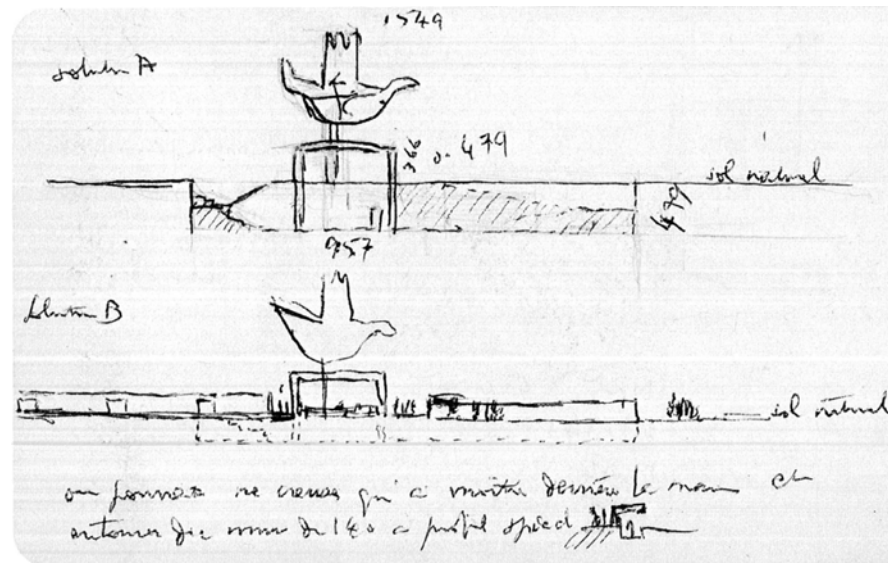 1549
solution A
366
0.479
sol naturel
479
957
solution B
sol naturel
on pourrait ne creuser qu'à moitié derrière la main et
entourer d'un mur de 140 à profil spécial